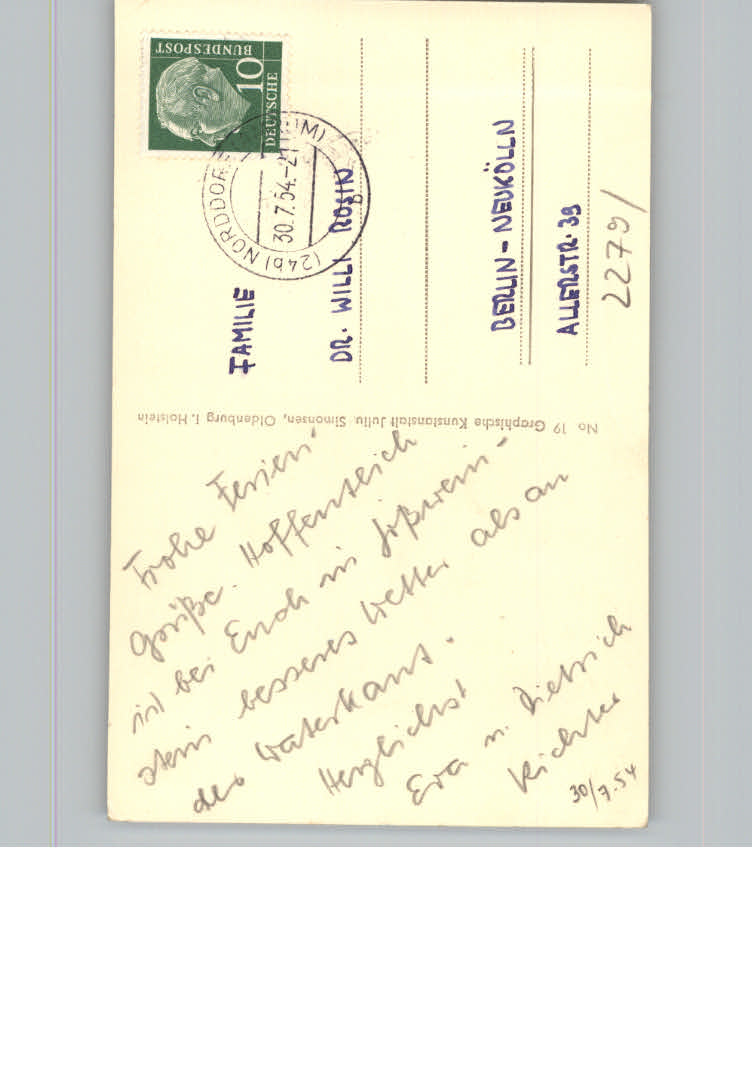 Frohe Ferien
Grüße. Hoffentlich
ist bei Euch in Gößwein-
stein besseres Wetter als an
der Waterkant.
Herzlichst
Eva u. Dietrich
Richter
30/7.54
No 19 Graphische Kunstanstalt Julius Simonsen, Oldenburg i. Holstein
DEUTSCHE
BUNDESPOST
10
(24b) NORDDOR
30.7.54.-21
FAMILIE
DR. WILLI ROSIN
BERLIN-NEUKÖLLN
ALLERSTR. 39
2279/